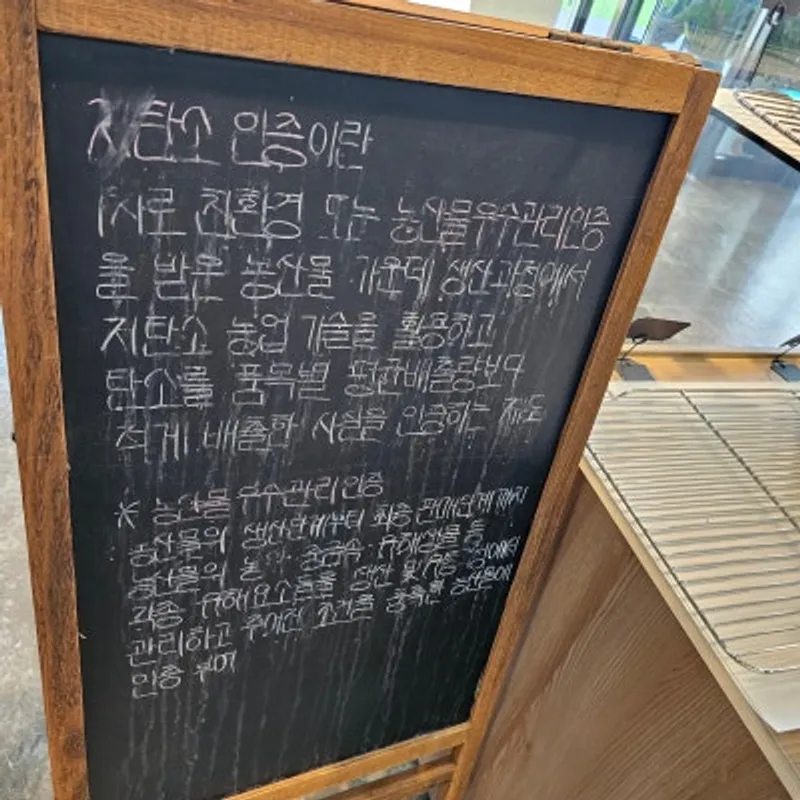 저탄소 인증이란
사로 친환경 또는 농산물우수관리인증
을 받은 농산물 가운데 생산과정에서
저탄소 농업 기술을 활용하고
탄소를 품목별 평균배출량보다
적게 배출한 사실을 인증하는 제도
* 농산물 우수관리 인증
농산물의 생산단계부터 최종 판매단계까지
농산물의 농약 · 중금속 · 유해생물 등
각종 위해요소들을 생산 및
관리하고 주어진 조건을 충족한 농산물에
인증 부여